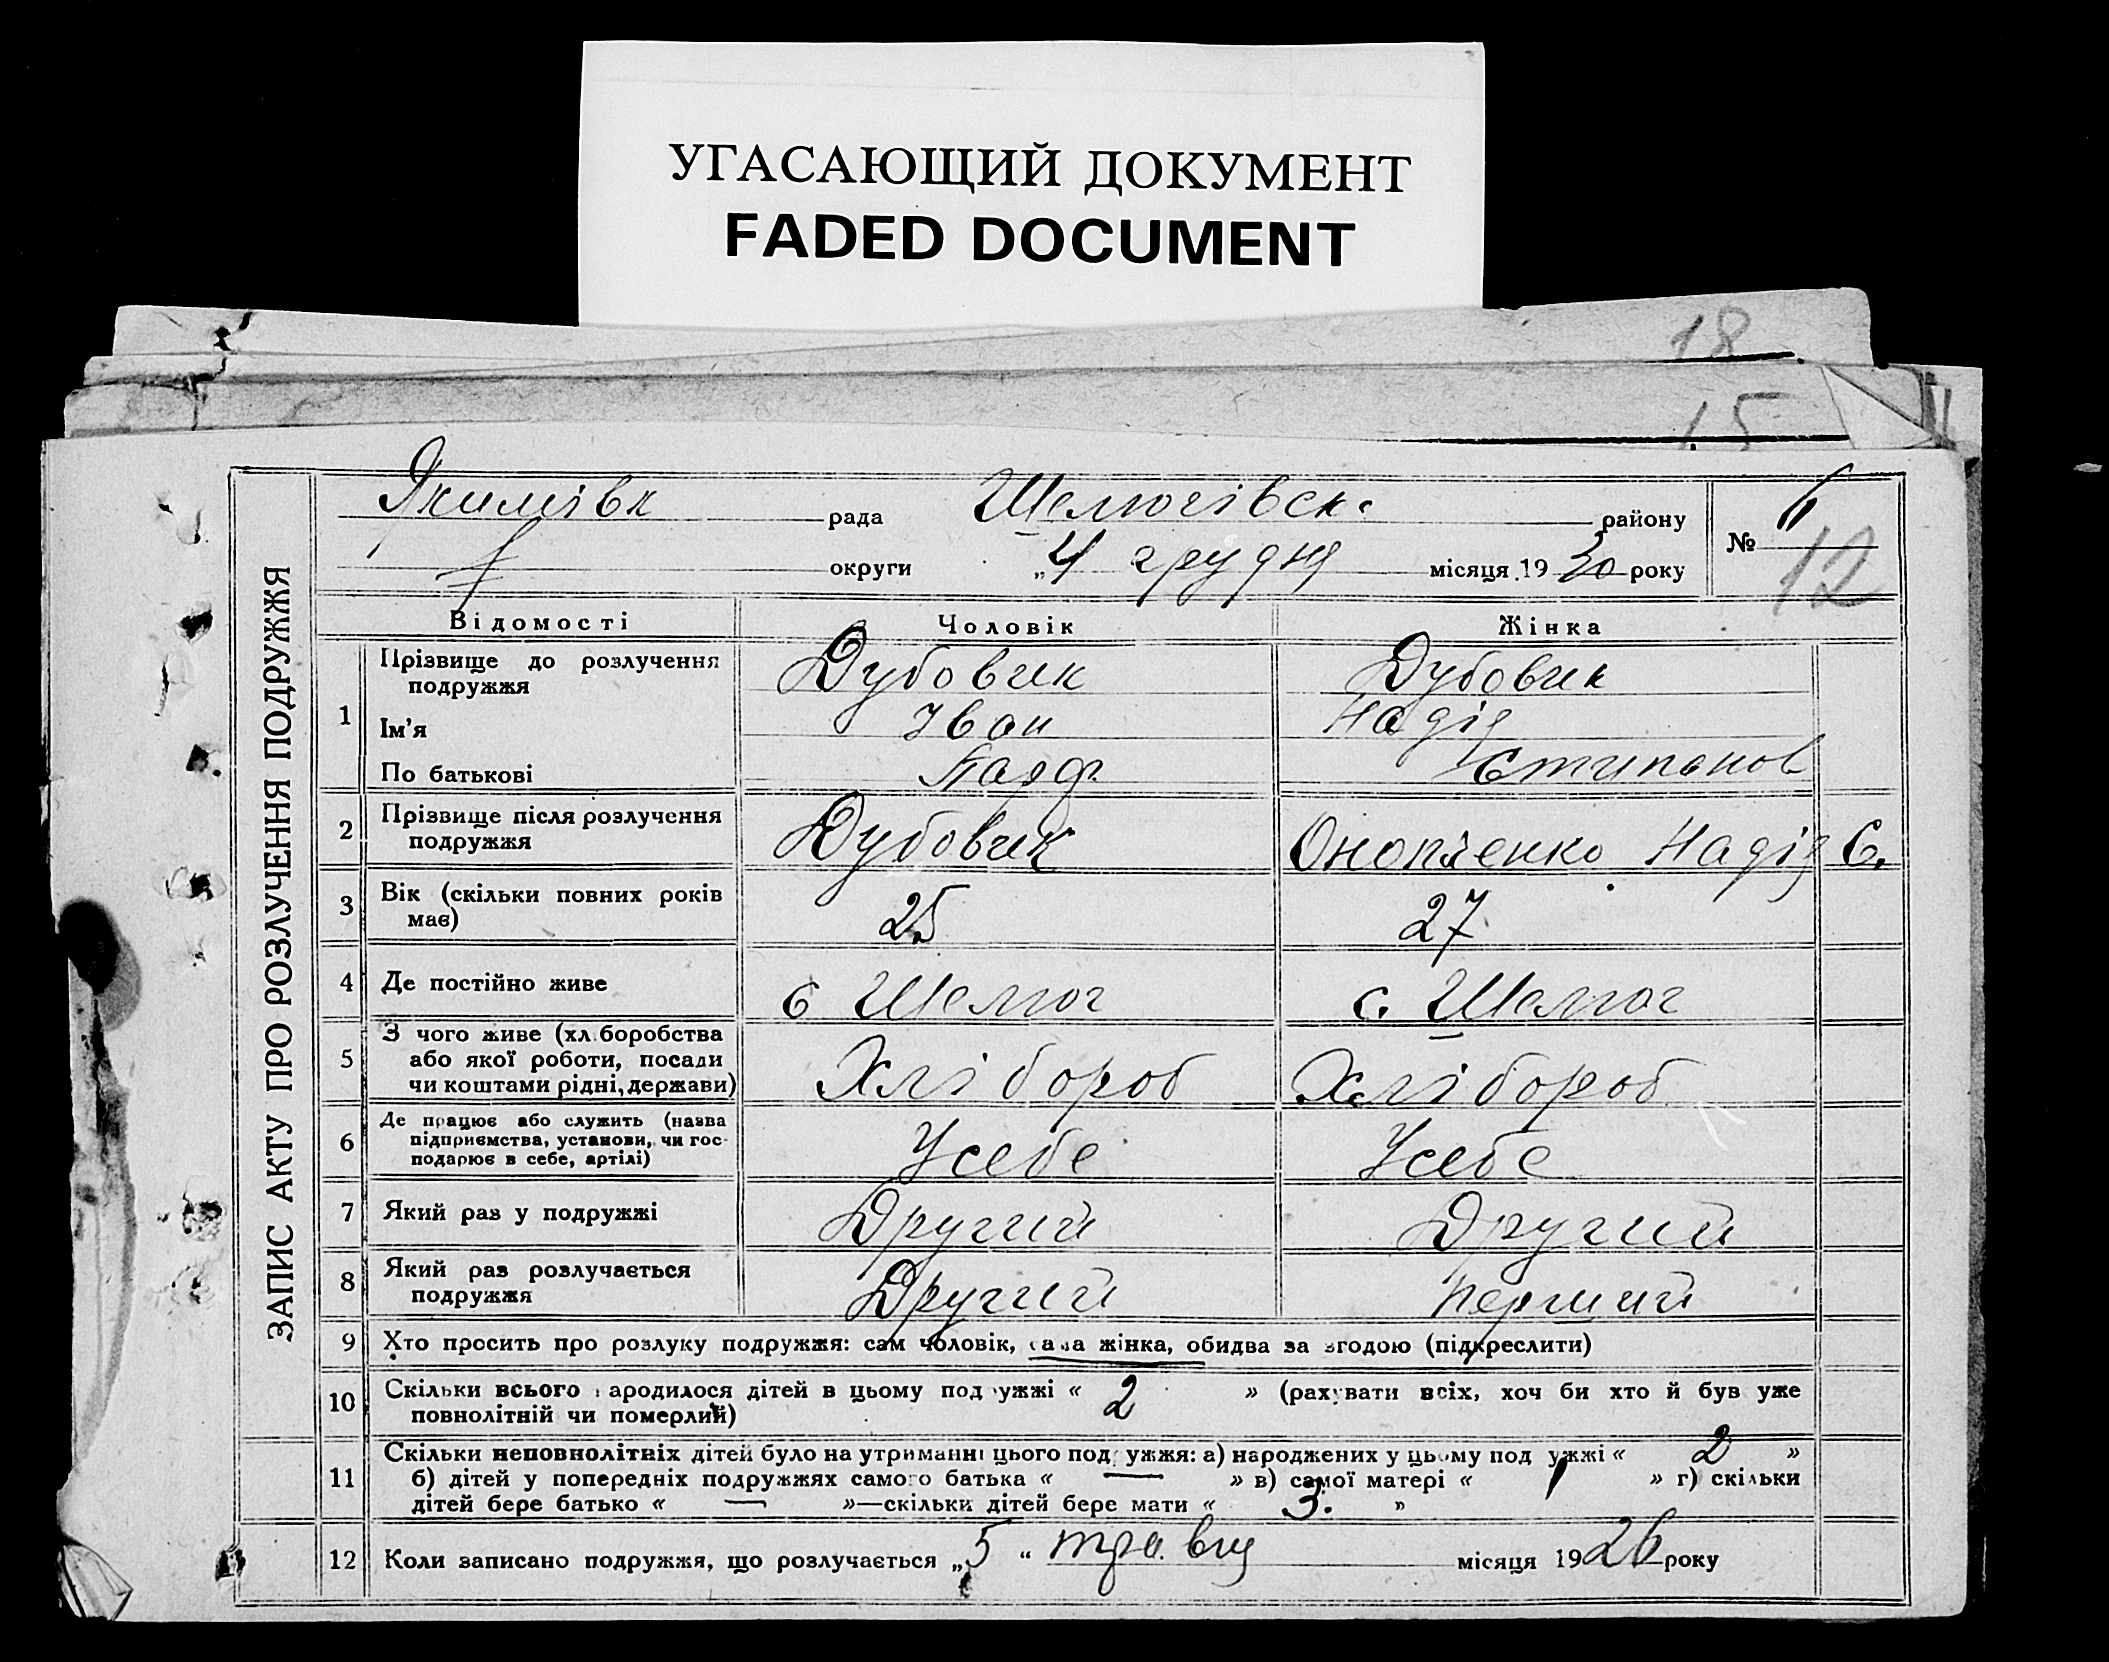 УГАСАЮЩИЙ ДОКУМЕНТ
FADED DOCUMENT
18
15
ЗАПИС АКТУ ПРО РОЗЛУЧЕННЯ ПОДРУЖЖЯ
Якимівк рада Шелюгівск. району
№ 6
12
округи „4 грудня місяця 1930 року
Відомості Чоловік Жінка
1 Прізвище до розлучення подружжя Дубовик Дубовик
Ім'я Іван Надія
По батькові Парф. Стипанов
2 Прізвище після розлучення подружжя Дубовик Онопченко Надія С.
3 Вік (скільки повних років має) 25 27
4 Де постійно живе с Шелюг с. Шелюг
5 З чого живе (хліборобства
або якої роботи, посади
чи коштами рідні, держави) Хлібороб Хлібороб
6 Де працює або служить (назва
підприємства, установи, чи гос-
подарює в себе, артілі) Усебе Усебе
7 Який раз у подружжі Другий Другий
8 Який раз розлучається подружжя Другий перший
9 Хто просить про розлуку подружжя: сам чоловік, сама жінка, обидва за згодою (підкреслити)
10 Скільки всього народилося дітей в цьому подружжі « 2 » (рахувати всіх, хоч би хто й був уже
повнолітній чи померлий)
11 Скільки неповнолітніх дітей було на утриманні цього подружжя: а) народжених у цьому подружжі « 2 »
б) дітей у попередніх подружжях самого батька « — » в) самої матері « 1 » г) скільки
дітей бере батько « — »—скільки дітей бере мати « 3. »
12 Коли записано подружжя, що розлучається „5“ травня місяця 1926 року